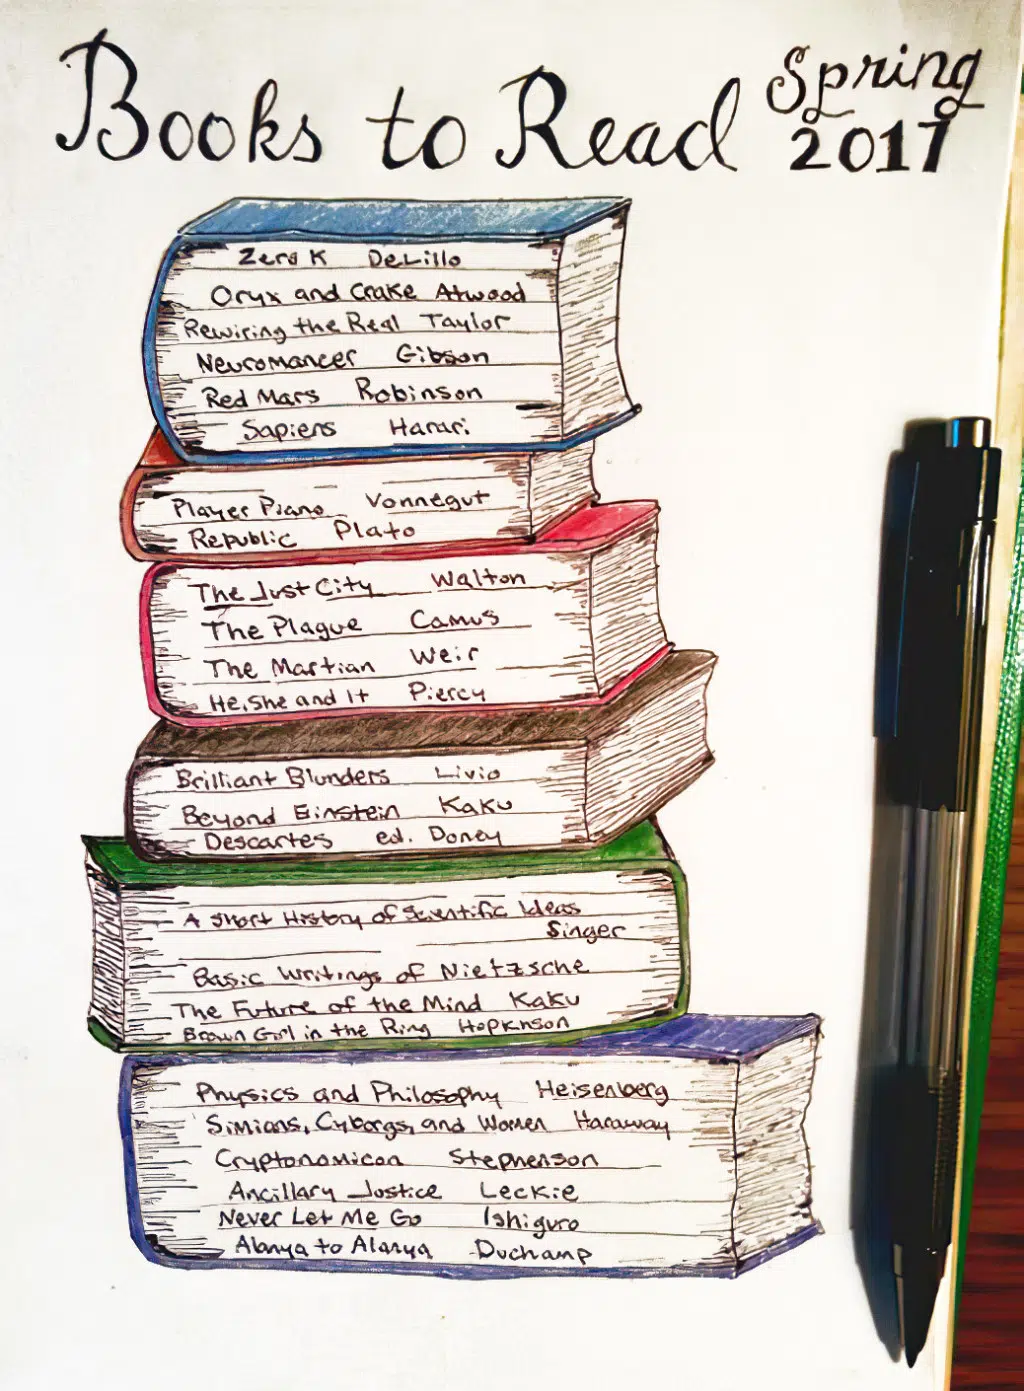 Books to Read Spring 2017
Zero K DeLillo
Oryx and Crake Atwood
Rewiring the Real Taylor
Neuromancer Gibson
Red Mars Robinson
Sapiens Harari
Player Piano Vonnegut
Republic Plato
The Just City Walton
The Plague Camus
The Martian Weir
He, She and It Piercy
Brilliant Blunders Livio
Beyond Einstein Kaku
Descartes ed. Doney
A Short History of Scientific Ideas
Singer
Basic Writings of Nietzsche
The Future of the Mind Kaku
Brown Girl in the Ring Hopkinson
Physics and Philosophy Heisenberg
Simians, Cyborgs, and Women Haraway
Cryptonomicon Stephenson
Ancillary Justice Leckie
Never Let Me Go Ishiguro
Alanya to Alanya Duchamp